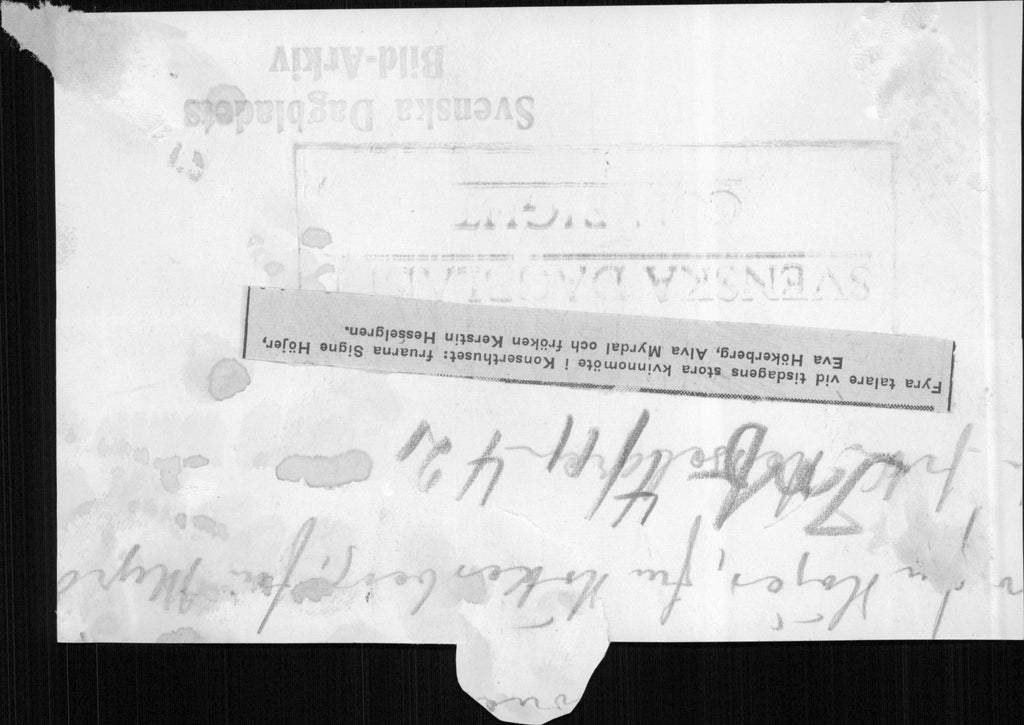 fru Höjer, fru Hökerberg, fru Myrd
Hesselgren 4 2
Fyra talare vid tisdagens stora kvinnomöte i Konserthuset: fruarna Signe Höjer,
Eva Hökerberg, Alva Myrdal och fröken Kerstin Hesselgren.
SVENSKA DAGBLAD
COPYRIGHT
Svenska Dagbladets
Bild-Arkiv